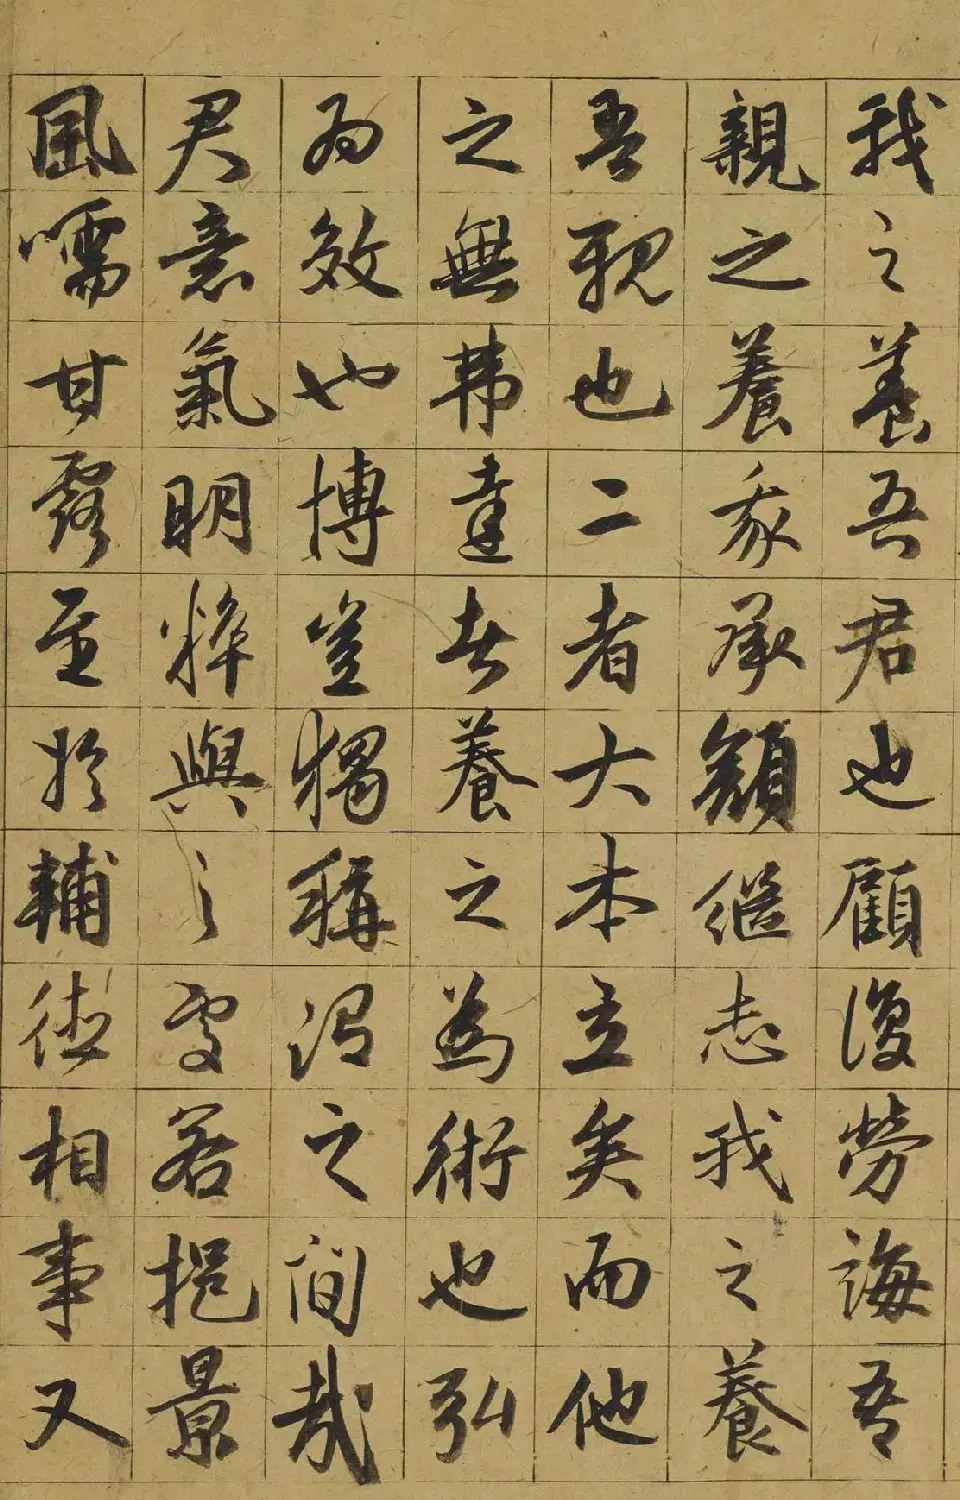 我之養吾君也顧復勞誨吾
親之養我承顏繼志我之養
吾親也二者大本立矣而他
之無弗達者養之為術也弘
為效也博豈獨稱謂之間哉
君意氣明粹與之處若挹景
風嚅甘露至於輔德相事又